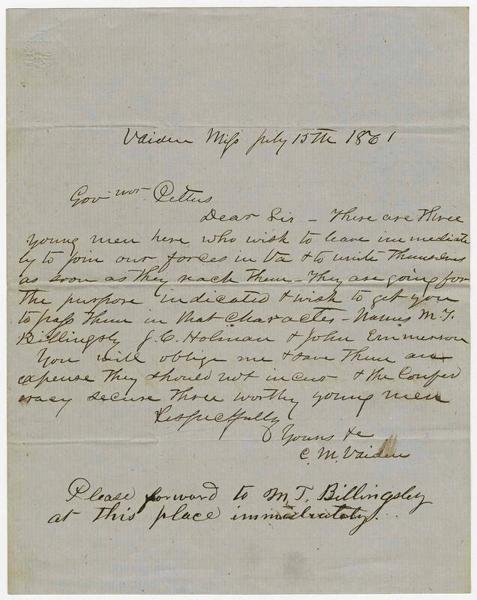 Vaiden Miss July 15th 1861
Governor. Pettus
Dear Sir - There are three
young men here who wish to leave immediate
ly to join our forces in Va & to unite themselves
as soon as they reach them - They are going for
the purpose indicated & wish to get you
to pass them in that Character - Names M. T.
Billingsly J. C. Holman & John Emmerson
You will oblige me & save them an
expense they should not incur & the Confed
eracy secure three worthy young men
Respectfully
Yours &c
C. M. Vaiden
Please forward to M. T. Billingsley
at this place immediately..